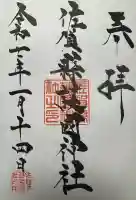 奉拝
佐賀縣護國神社
令和七年一月十四日